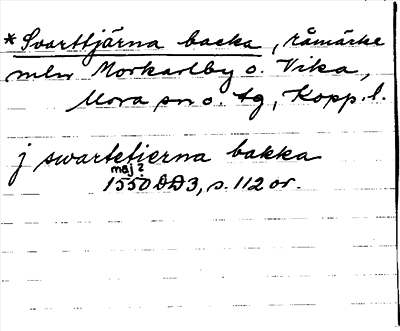 *Svarttjärna backa, råmärke
mlw Morkarlby o. Vika,
Mora sn o. tg, Kopp. l.
j swartetierna bakka
maj?
1550 DD3, s. 112 or.